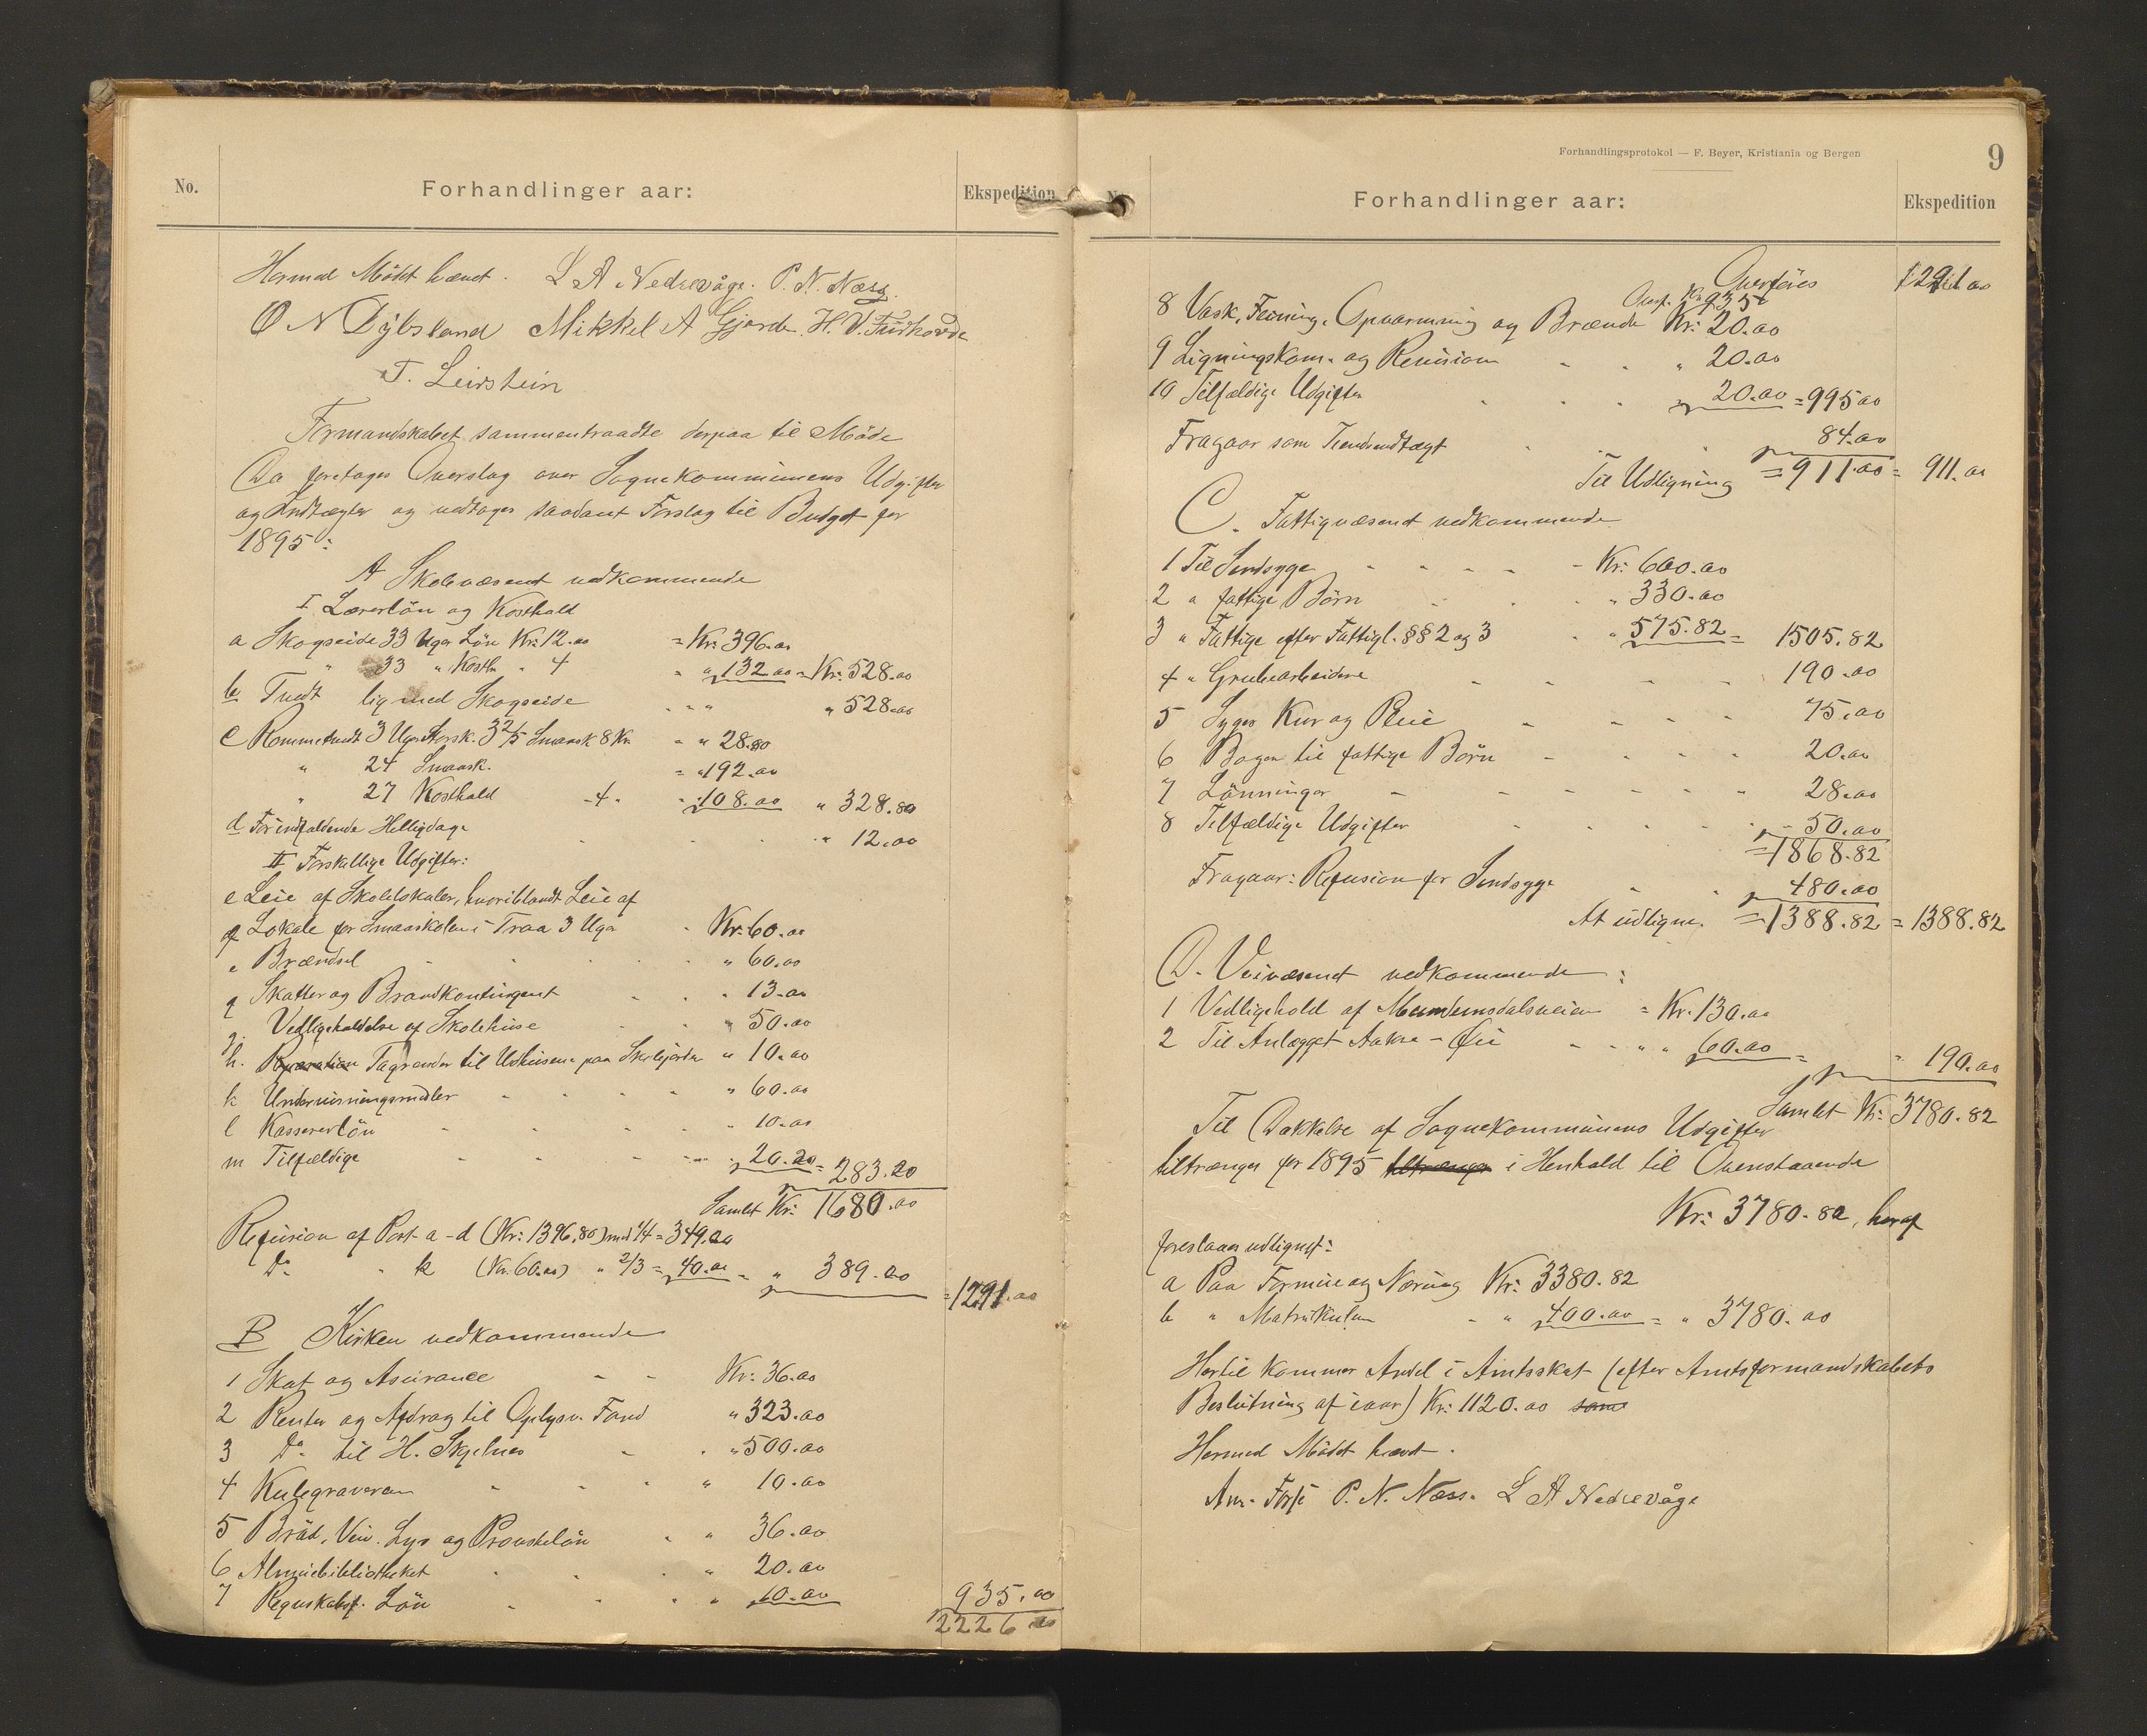 No.
Forhandlinger aar:
Ekspedition
Hermed Mödet hævet. L A Nedrevåge. P. N. Næss.
O N Dybsland Mikkel A Gjerde. H. V. Furhovde
T. Leirstein
Formandskabet sammentraadte derpaa til Möde
Da foretages Overslag over Sognekommunens Udgifter
og Indtægter og vedtages saadant Forslag til Budget for
1895:
A Skolevæsenet vedkommende
I Lærerlön og Kosthold
a Skogseide 33 Uger Lön Kr: 12.00 = Kr: 396.00
" 33 " Kosth " 4 " " 132.00 = Kr: 528.00
b Tvedt lig med Skogseide " 528.00
c Rommetvedt 3 Uger Storsk. 3 2/5 Smaask 8 Kr " " 28.80
" 24 Smaask. = " 192.00
" 27 Kosthold - 4 " " 108.00 " 328.80
d For indfaldende Helligdage " 12.00
II Forskellige Udgifter:
e Leie af Skolelokaler, hvoriblandt Leie af
Lokale for Smaaskolen i Traa 3 Uger Kr: 60.00
Brændsel " 60.00
Skatter og Brandkontingent " 13.00
g. Vedligeholdelse af Skolehuse " 50.00
h. Reparation Tagrender til Udhusene paa Skolejorden " 10.00
k Undervisningsmidler " 60.00
l Kassererlön " 10.00
m Tilfældige 20.20 = 283.20
Samlet Kr: 1680.00
Refusion af Post a - d (Kr: 1396.80) med 1/4 = 349.00
Do " k (Kr. 60.00) " 2/3 = 40.00 = " 389.00
= 1291.00
B Kirken vedkommende
1 Skat og Asurance Kr: 36.00
2 Renter og Afdrag til Oplysn. Fond " 323.00
3 Do til H. Skjelnes " 500.00
4 Kulegraveren " 10.00
5 Bröd, Vin. Lys og Provstelön " 36.00
6 Almuebibliotheket " 20.00
7 Regnskabsf. Lön " 10.00
935.00
2226.00
Forhandlingsprotokol — F. Beyer, Kristiania og Bergen
9
Forhandlinger aar:
Ekspedition
Overföres 1291.00
Overf. Kr 935
8 Vask, Feining, Opvarmning og Brænde Kr: 20.00
9 Ligningskom. og Revision " 20.00
10 Tilfældige Udgifter 20.00 = 995.00
Fragaar som Tiendeindtægt 84.00
Til Udligning = 911.00 = 911.00
C. Fattigvæsenet vedkommende
1 Til Sindsyge - Kr: 600.00
2 " fattige Börn " 330.00
3 " Fattige efter Fattigl. §§ 2 og 3 " 575.82 = 1505.82
4 " Grubearbeidere 190.00
5 Syges Kur og Pleie 75.00
6 Böger til fattige Börn 20.00
7 Lönninger 28.00
8 Tilfældige Udgifter 50.00
= 1868.82
Fragaar: Refusion for Sindsyge 480.00
At udligne. = 1388.82 = 1388.82
D. Veivæsenet vedkommende:
1 Vedligehold af Mundemsdalsveien = Kr. 130.00
2 Til Anlægget Aakre - Öie " " 60.00 = " 190.00
Samlet Kr: 3780.82
Til Dækkelse af Sognekommunens Udgifter
tiltrænges for 1895 tiltrænges i Henhold til Ovenstaaende
Kr: 3780.82, heraf
foreslaaes udlignet:
a Paa Formue og Næring Kr: 3380.82
b " Matrikulen " 400.00 = " 3780.00
Hertil kommer Andel i Amtsskat (efter Amtsformandskabets
Beslutning af iaar) Kr: 1120.00 som
Hermed Mödet hævet.
P. N. Næss. L A Nedrevåge